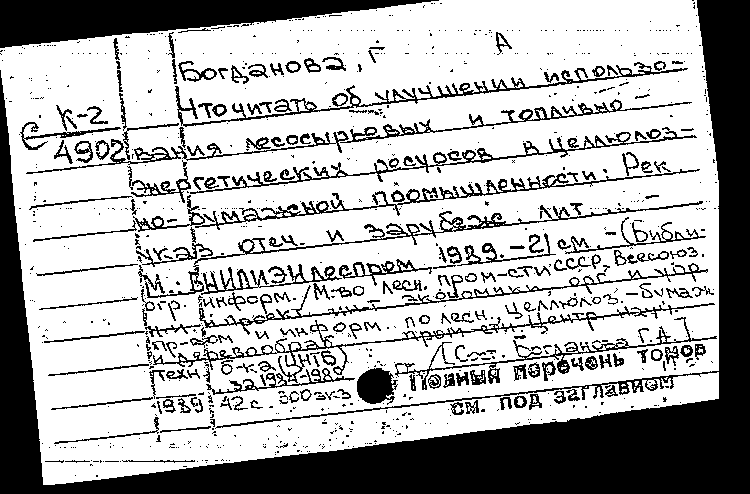 Богданова, Г А
К-2
Что читать об улучшении использо-
С 4902
вания лесосырьевых и топливно-
энергетических ресурсов в целлюлоз-
но-бумажной промышленности: Рек.
указ. отеч. и зарубеж. лит. ... -
М.: ВНИПИЭИлеспром, 1989. - 21 см. - (Библи-
огр. информ. / М-во лесн. пром-сти СССР, Всесоюз.
н.-и. и проект. ин-т экономики, орг. и упр.
пр-вом и информ. по лесн., целлюлоз.-бумаж.
и деревообраб. пром-сти, Центр. науч.
техн. б-ка (ЦНТБ)
/ [Сост. Богданова Г.А.]
за 1984-1988
1989 42 с. 300 экз
Полный перечень томов
см. под заглавием